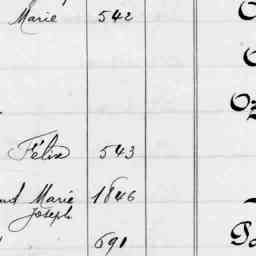 Marie 542
Oz
Félix 543
Marie 1846
Joseph
691